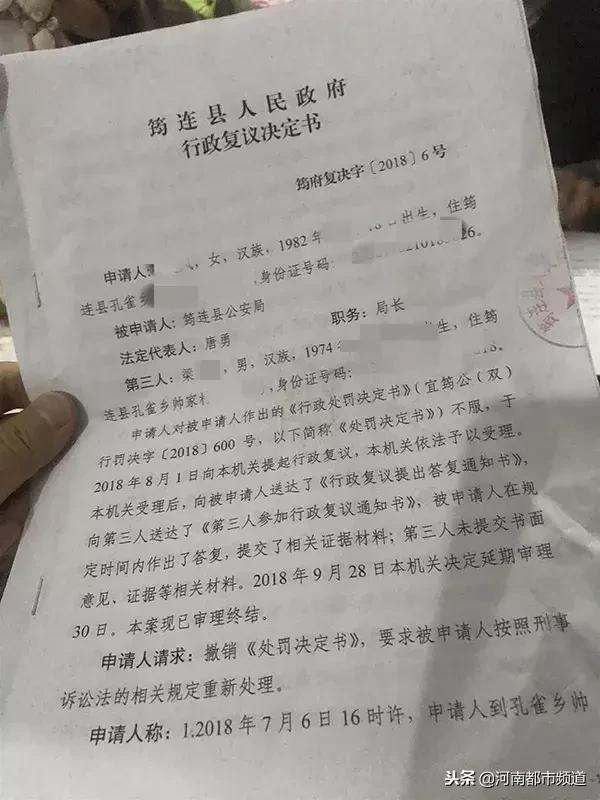 筠连县人民政府
行政复议决定书
筠府复决字〔2018〕6号
申请人 ，女，汉族，1982年 出生，住筠
连县孔雀乡 ，身份证号码： 26。
被申请人：筠连县公安局
法定代表人：唐勇 职务：局长
第三人：梁 ，男，汉族，1974 出生，住筠
连县孔雀乡帅家村 ，身份证号码：
申请人对被申请人作出的《行政处罚决定书》（宜筠公（双）
行罚决字〔2018〕600号，以下简称《处罚决定书》）不服，于
2018年8月1日向本机关提起行政复议，本机关依法予以受理。
本机关受理后，向被申请人送达了《行政复议提出答复通知书》，
向第三人送达了《第三人参加行政复议通知书》，被申请人在规
定时间内作出了答复，提交了相关证据材料；第三人未提交书面
意见、证据等相关材料。2018年9月28日本机关决定延期审理
30日。本案现已审理终结。
申请人请求：撤销《处罚决定书》，要求被申请人按照刑事
诉讼法的相关规定重新处理。
申请人称：1.2018年7月6日16时许，申请人到孔雀乡帅
头条@河南都市频道